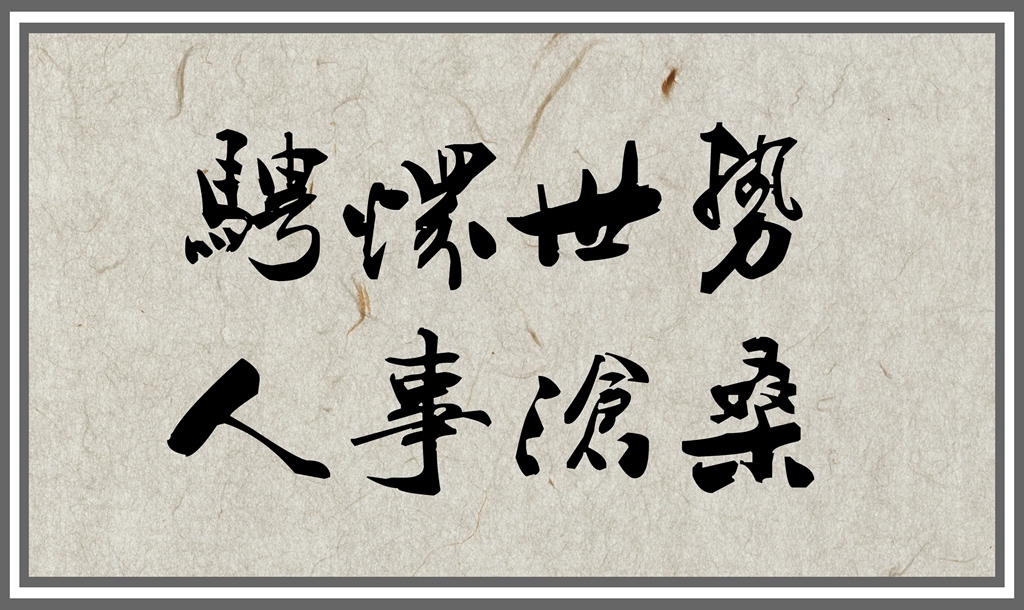 騁懷世勢
人事滄桑